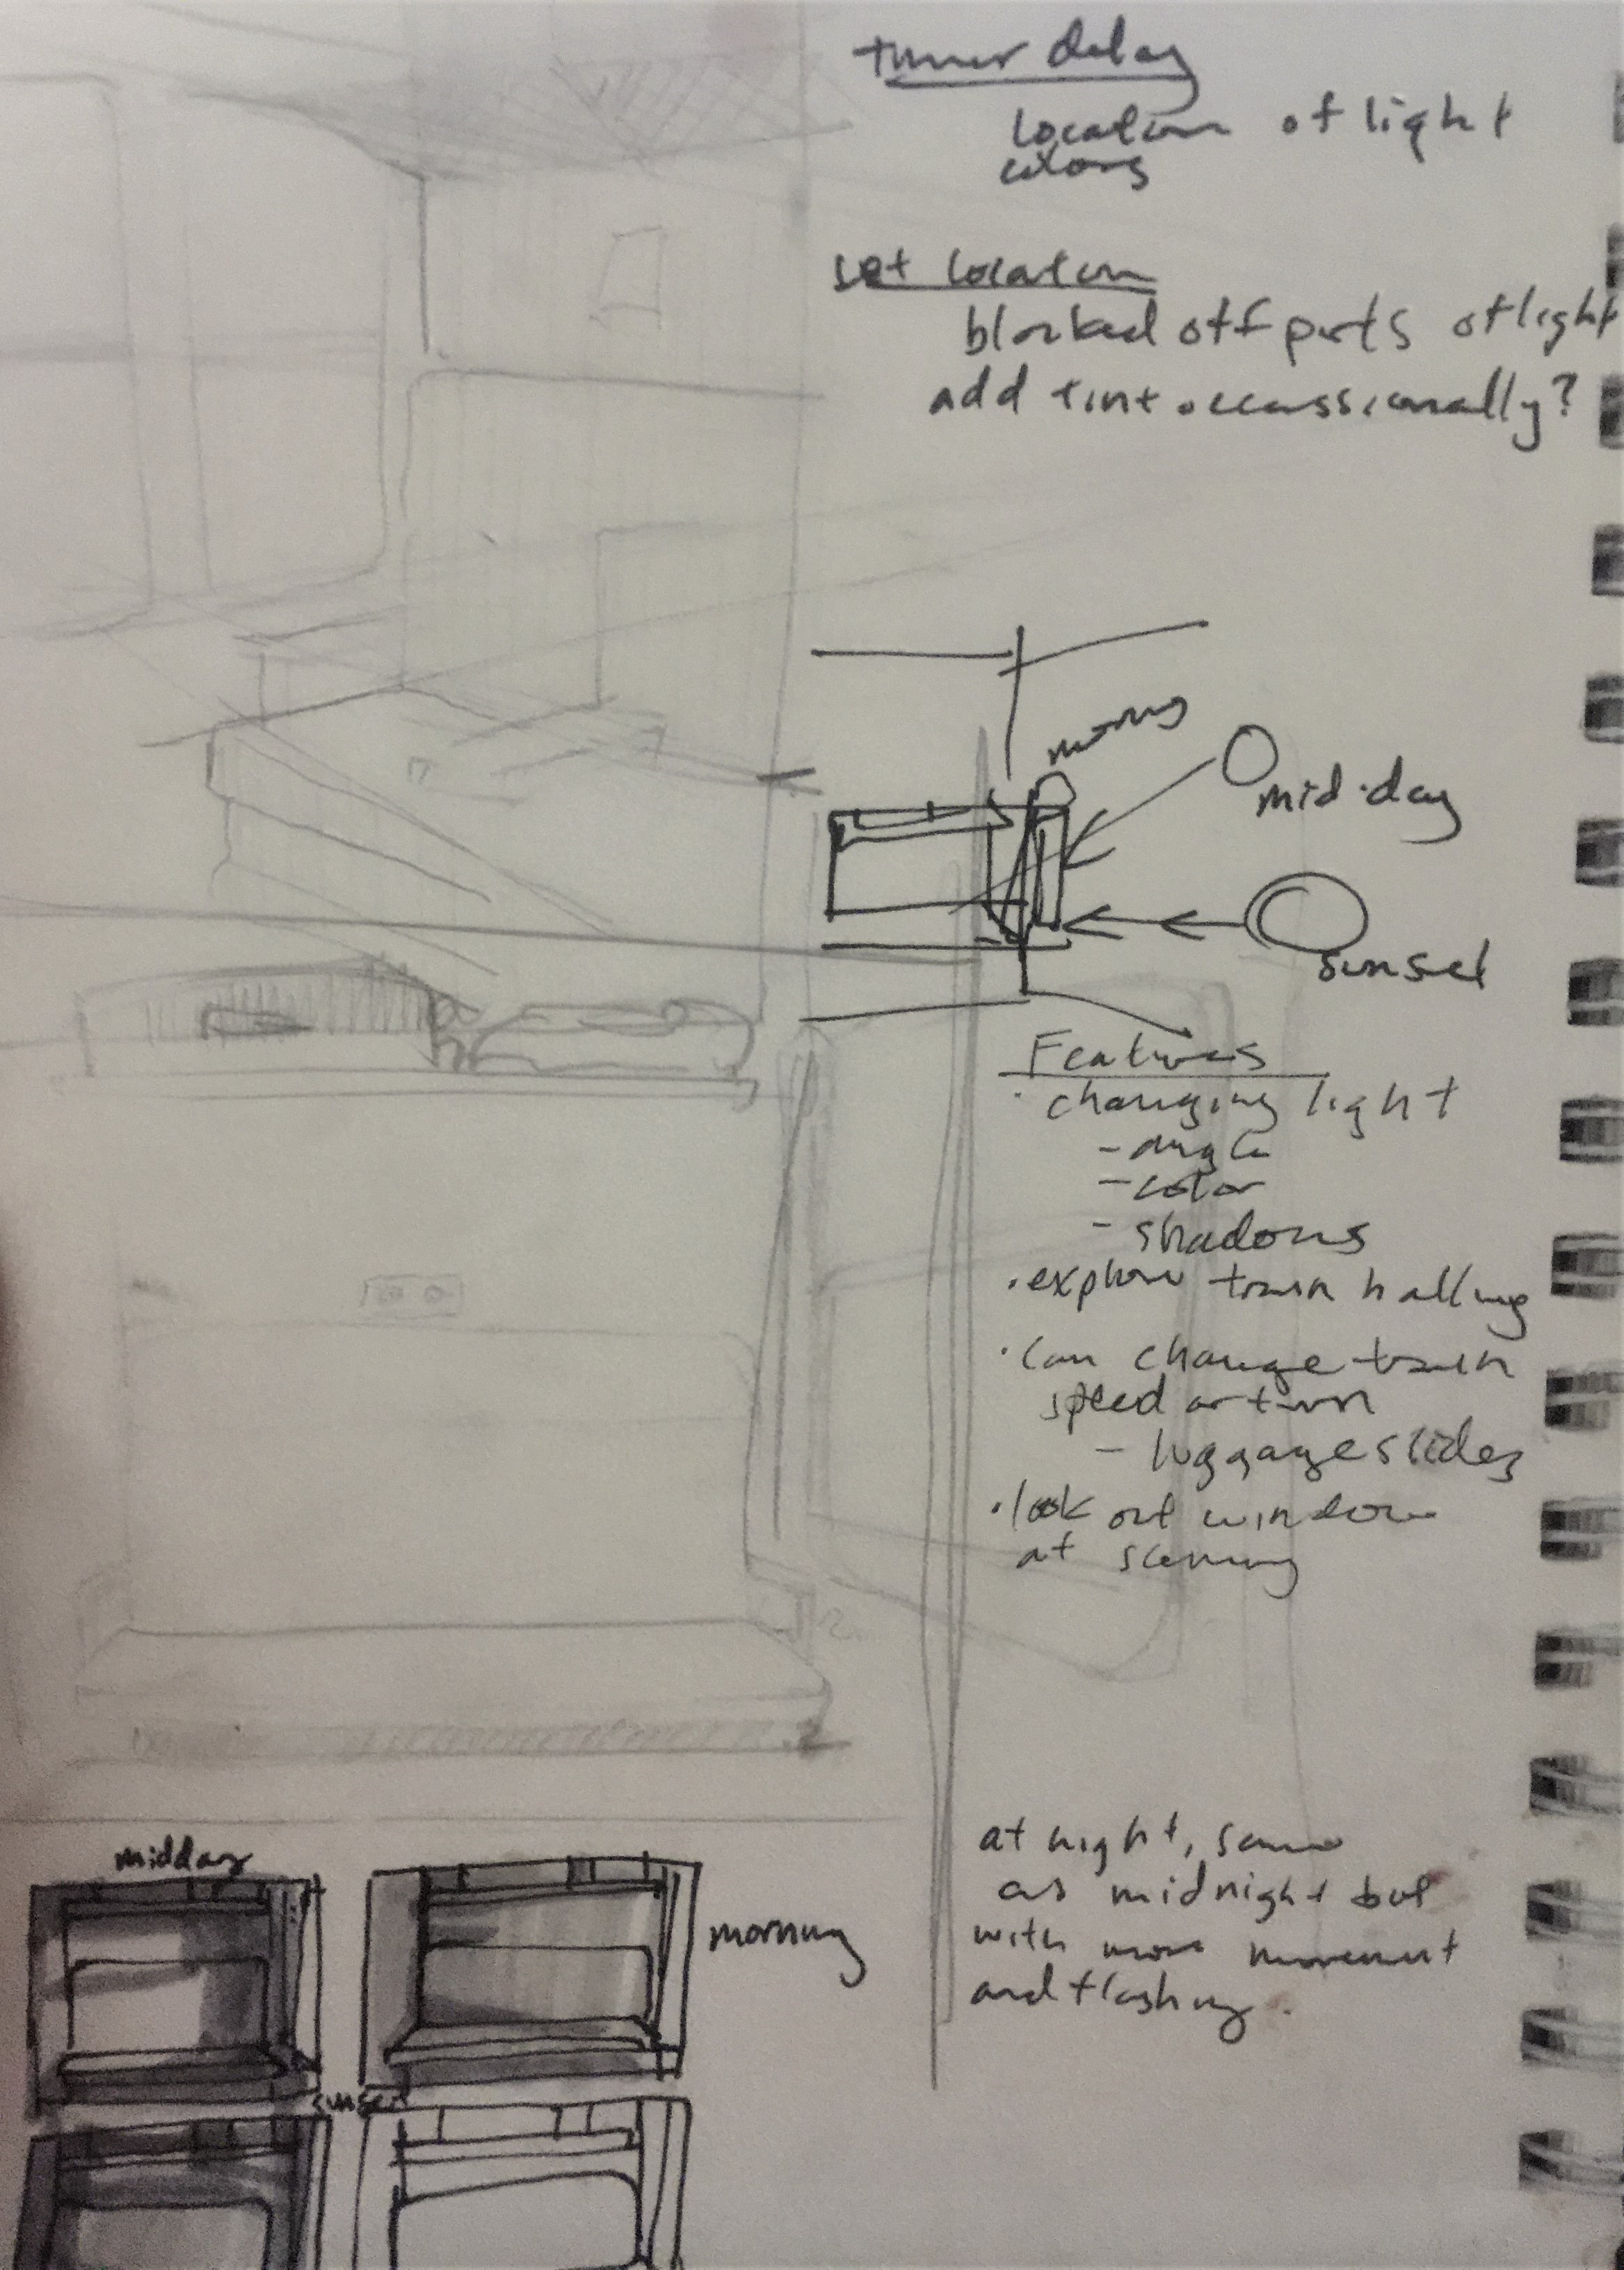 timer delay
location of light
colors
set location
blocked off parts of light
add tint occassionally?
morning
mid-day
sunset
Features
· changing light
- angle
- color
- shadows
· explore train hallway
· can change train
speed or turn
- luggage slides
· look out window
at scenery
at night, same
as midnight but
with more movement
and flashing.
midday
morning
sunset